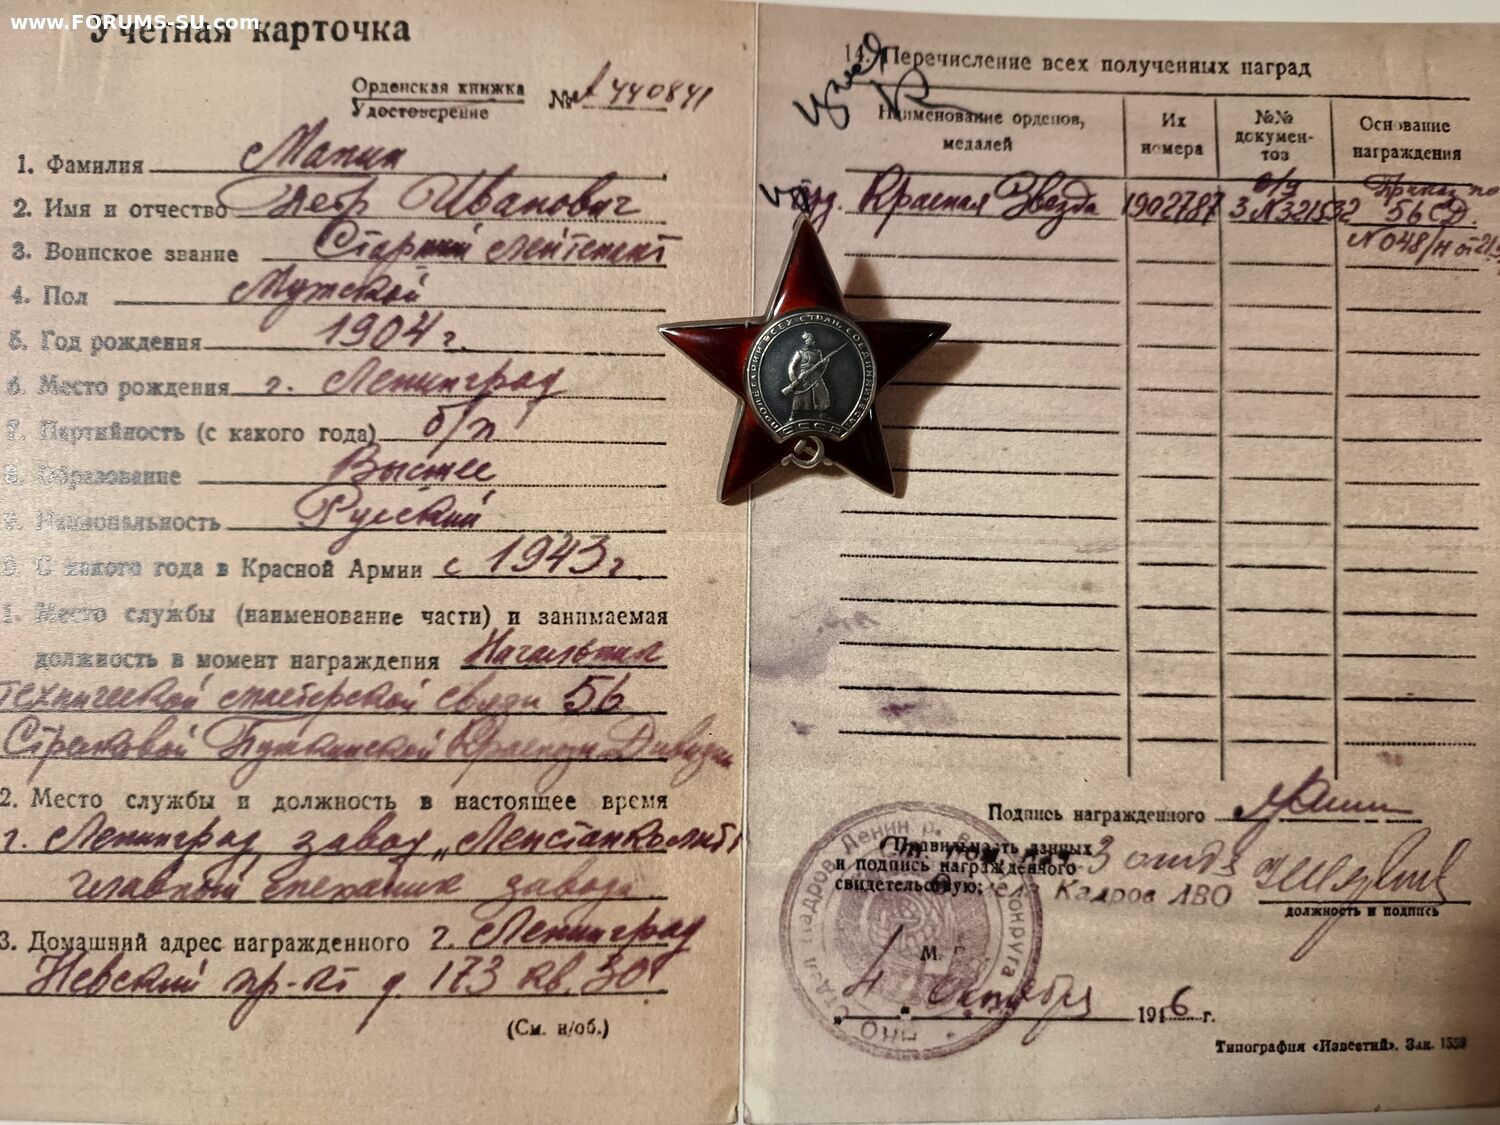 www.FORUMS-SU.com
Учетная карточка
Орденская книжка
Удостоверение
№ А 440841
1. Фамилия
2. Имя и отчество Петр Иванович
3. Воинское звание Старший лейтенант
4. Пол Мужской
5. Год рождения 1904 г.
6. Место рождения г. Ленинград
7. Партийность (с какого года) б/п
8. Образование Высшее
9. Национальность Русский
0. С какого года в Красной Армии с 1943 г.
1. Место службы (наименование части) и занимаемая
должность в момент награждения Начальник
технической мастерской связи 56
Стрелковой Пушкинской Дивизии
2. Место службы и должность в настоящее время
г. Ленинград, завод „Ленстанколит"
главный механик завода
3. Домашний адрес награжденного г. Ленинград
Невский пр-кт д. 173 кв. 30
(См. н/об.)
14. Перечисление всех полученных наград
Наименование орденов, медалей
Их номера
№№ документов
Основание награждения
орд. Красная Звезда 1902787 З № 321532 Приказ по 56 СД.
№ 048/н от 21.5
ПРОЛЕТАРИИ ВСЕХ СТРАН, СОЕДИНЯЙТЕСЬ!
СССР
Подпись награжденного
Правильность данных
и подпись награжденного
свидетельствую:
3 отд
Кадров ЛВО
должность и подпись
М. П.
„4" октября 1946 г.
Типография «Известий». Зак. 1559